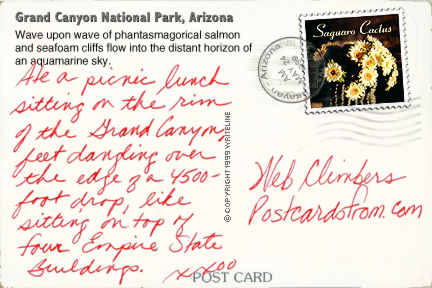 Grand Canyon National Park, Arizona
Wave upon wave of phantasmagorical salmon
and seafoam cliffs flow into the distant horizon of
an aquamarine sky.
Saguaro Cactus
Arizona
Ate a picnic lunch
sitting on the rim
of the Grand Canyon,
feet dangling over
the edge of a 4500-
foot drop, like
sitting on top of
four Empire State
Buildings.
xxoo
© COPYRIGHT 1999 WRITELINE
Web Climbers
Postcardsfrom.com
POST CARD